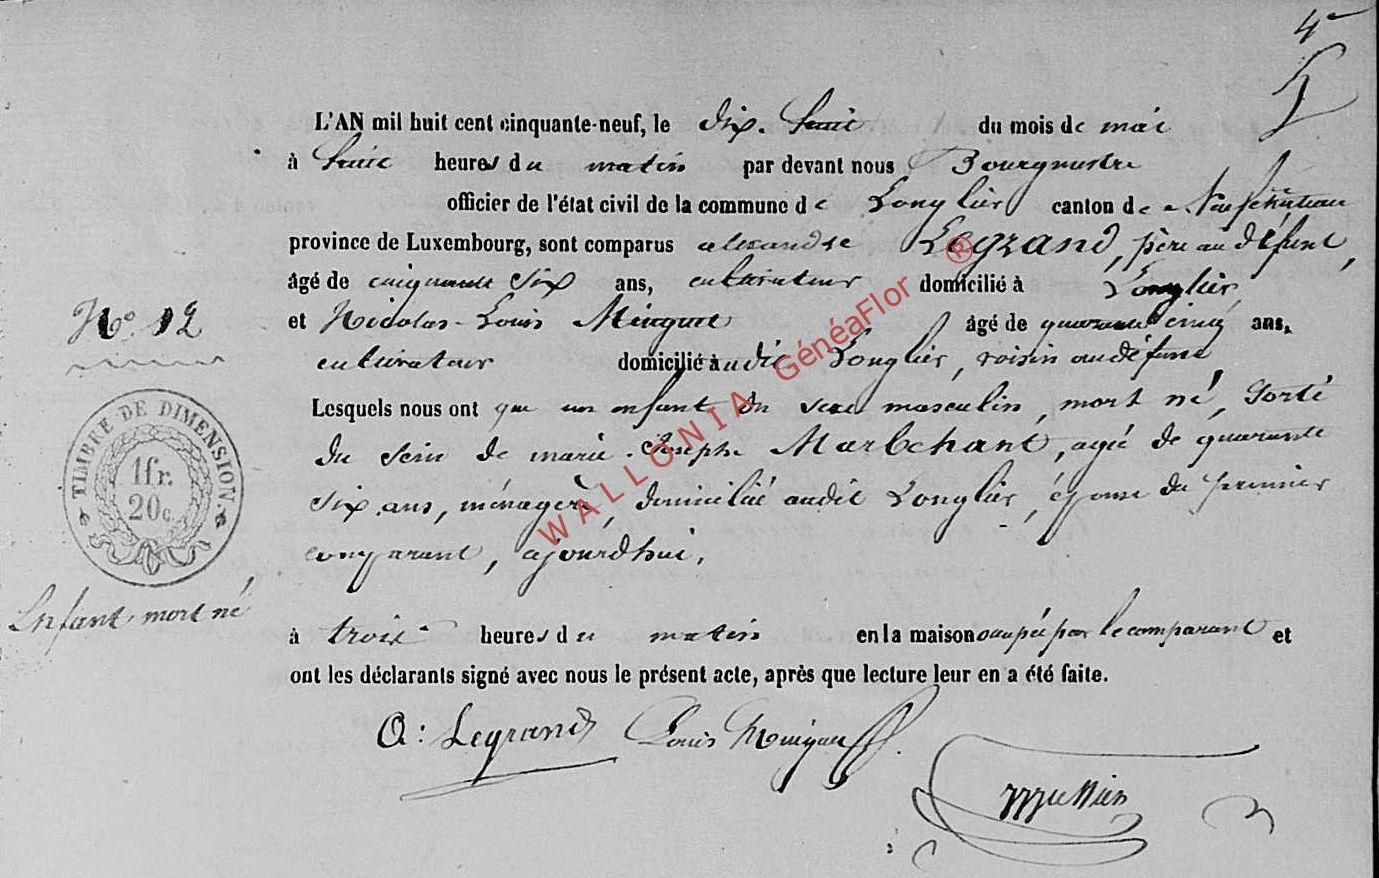 4e
L'AN mil huit cent cinquante-neuf, le dix-huit du mois de mai
à huit heures du matin par devant nous Bourgmestre
officier de l'état civil de la commune de Longlier canton de Neufchâteau
province de Luxembourg, sont comparus alexandre Legrand, père au défunt,
âgé de cinquante six ans, cultivateur domicilié à Longlier
N° 12
et Nicolas-Louis Minguet âgé de quarante cinq ans,
cultivateur domicilié audit Longlier, voisin au défunt
Lesquels nous ont que un enfant du sexe masculin, mort né, sorti
du sein de marie-Josephe Marlechant, agée de quarante
six ans, ménagère, domiciliée audit Longlier, épouse du premier
comparant, ajourd'hui,
TIMBRE DE DIMENSION
1 fr.
20c
Enfant mort né
à trois heures du matin en la maison occupée par le comparant et
ont les déclarants signé avec nous le présent acte, après que lecture leur en a été faite.
A: Legrand Louis Minguet
WALLONIA GénéaFlor ®